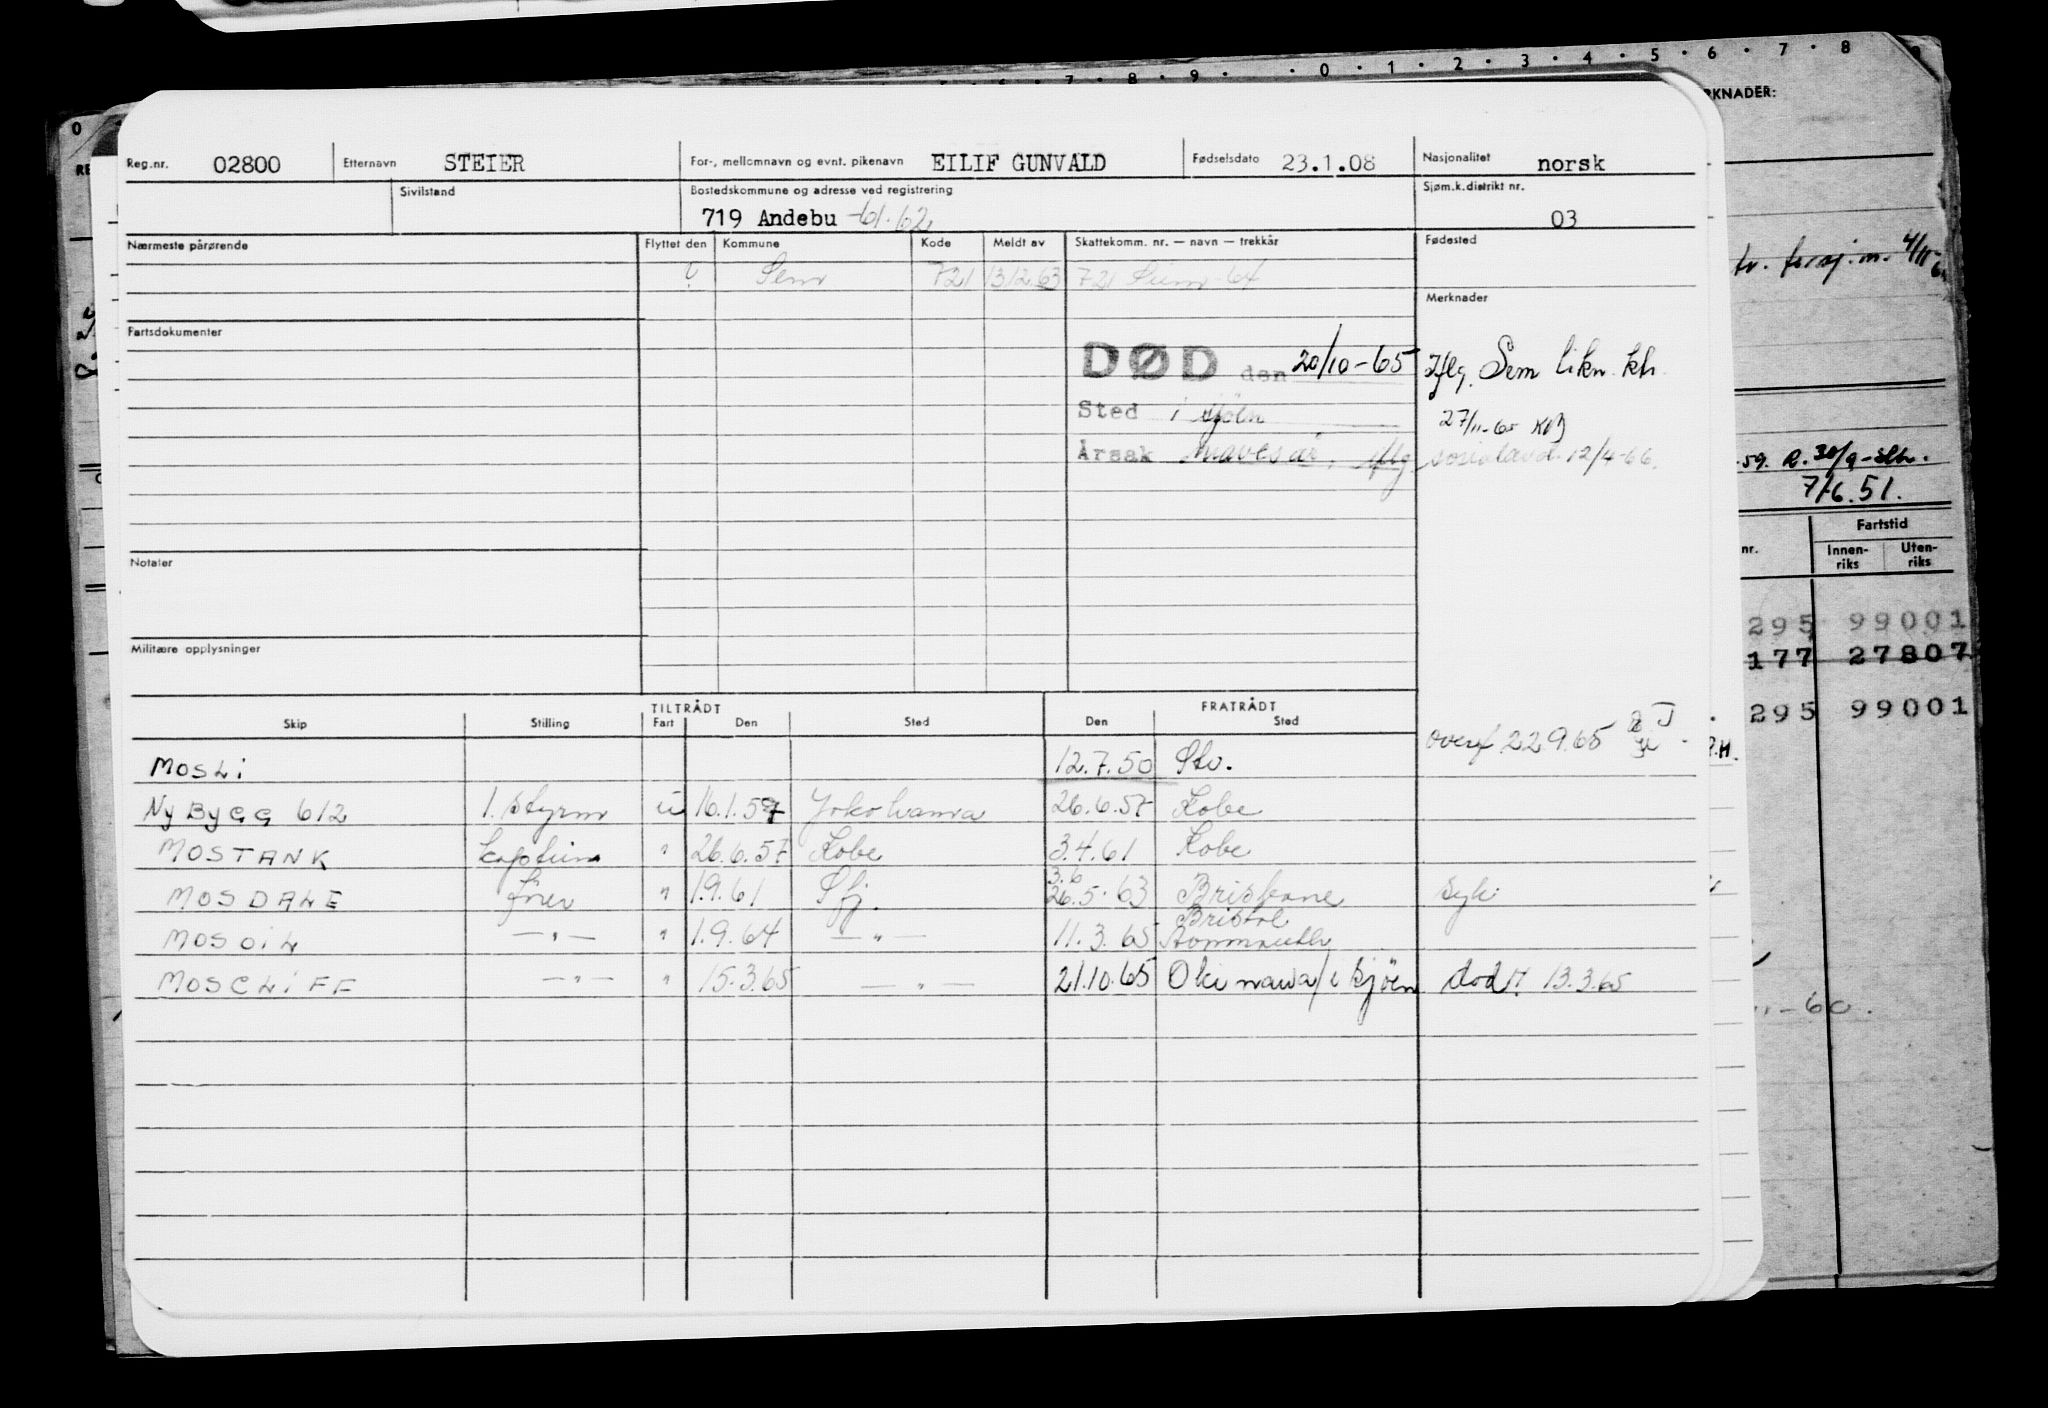 0 · 1 · 2 · 3 · 4 · 5 · 6 · 7 · 8
RKNADER:
Reg.nr. 02800 Etternavn STEIER For-, mellomnavn og evnt. pikenavn EILIF GUNVALD Fødselsdato 23.1.08 Nasjonalitet norsk
Sivilstand Bostedskommune og adresse ved registrering Sjøm.k.distrikt nr.
719 Andebu -61-62 03
Nærmeste pårørende Flyttet den Kommune Kode Meldt av Skattekomm. nr. — navn — trekkår Fødested
? Sem 721 13/12.63 721 Sem -64
Merknader
Fartsdokumenter
DØD den 20/10-65 Iflg. Sem likn. ktr.
Sted i sjøen 27/11-65
Årsak mavesår, iflg. sosialavd. 12/4-66.
59. R. 30/9
7/6.51.
Notater
Militære opplysninger
nr. Fartstid
Innen-riks Uten-riks
295 99001
177 27807
295 99001
TILTRÅDT FRATRÅDT
Skip Stilling Fart Den Sted Den Sted
overf 22.9.65
MOSLI 12.7.50 Stv.
NYBYGG 612 1. styrm u 16.1.57 Yokohama 26.6.57 Kobe
MOSTANK kaptein " 26.6.57 Kobe 3.4.61 Kobe
3.6
MOSDALE fører " 1.9.61 Sfj. 26.5.63 Brisbane syk
Bristol
MOSOIL —"— " 1.9.64 —"— 11.3.65
MOSCLIFF —"— " 15.3.65 —"— 21.10.65 Okinawa/i sjøen død 13.3.65
-60.